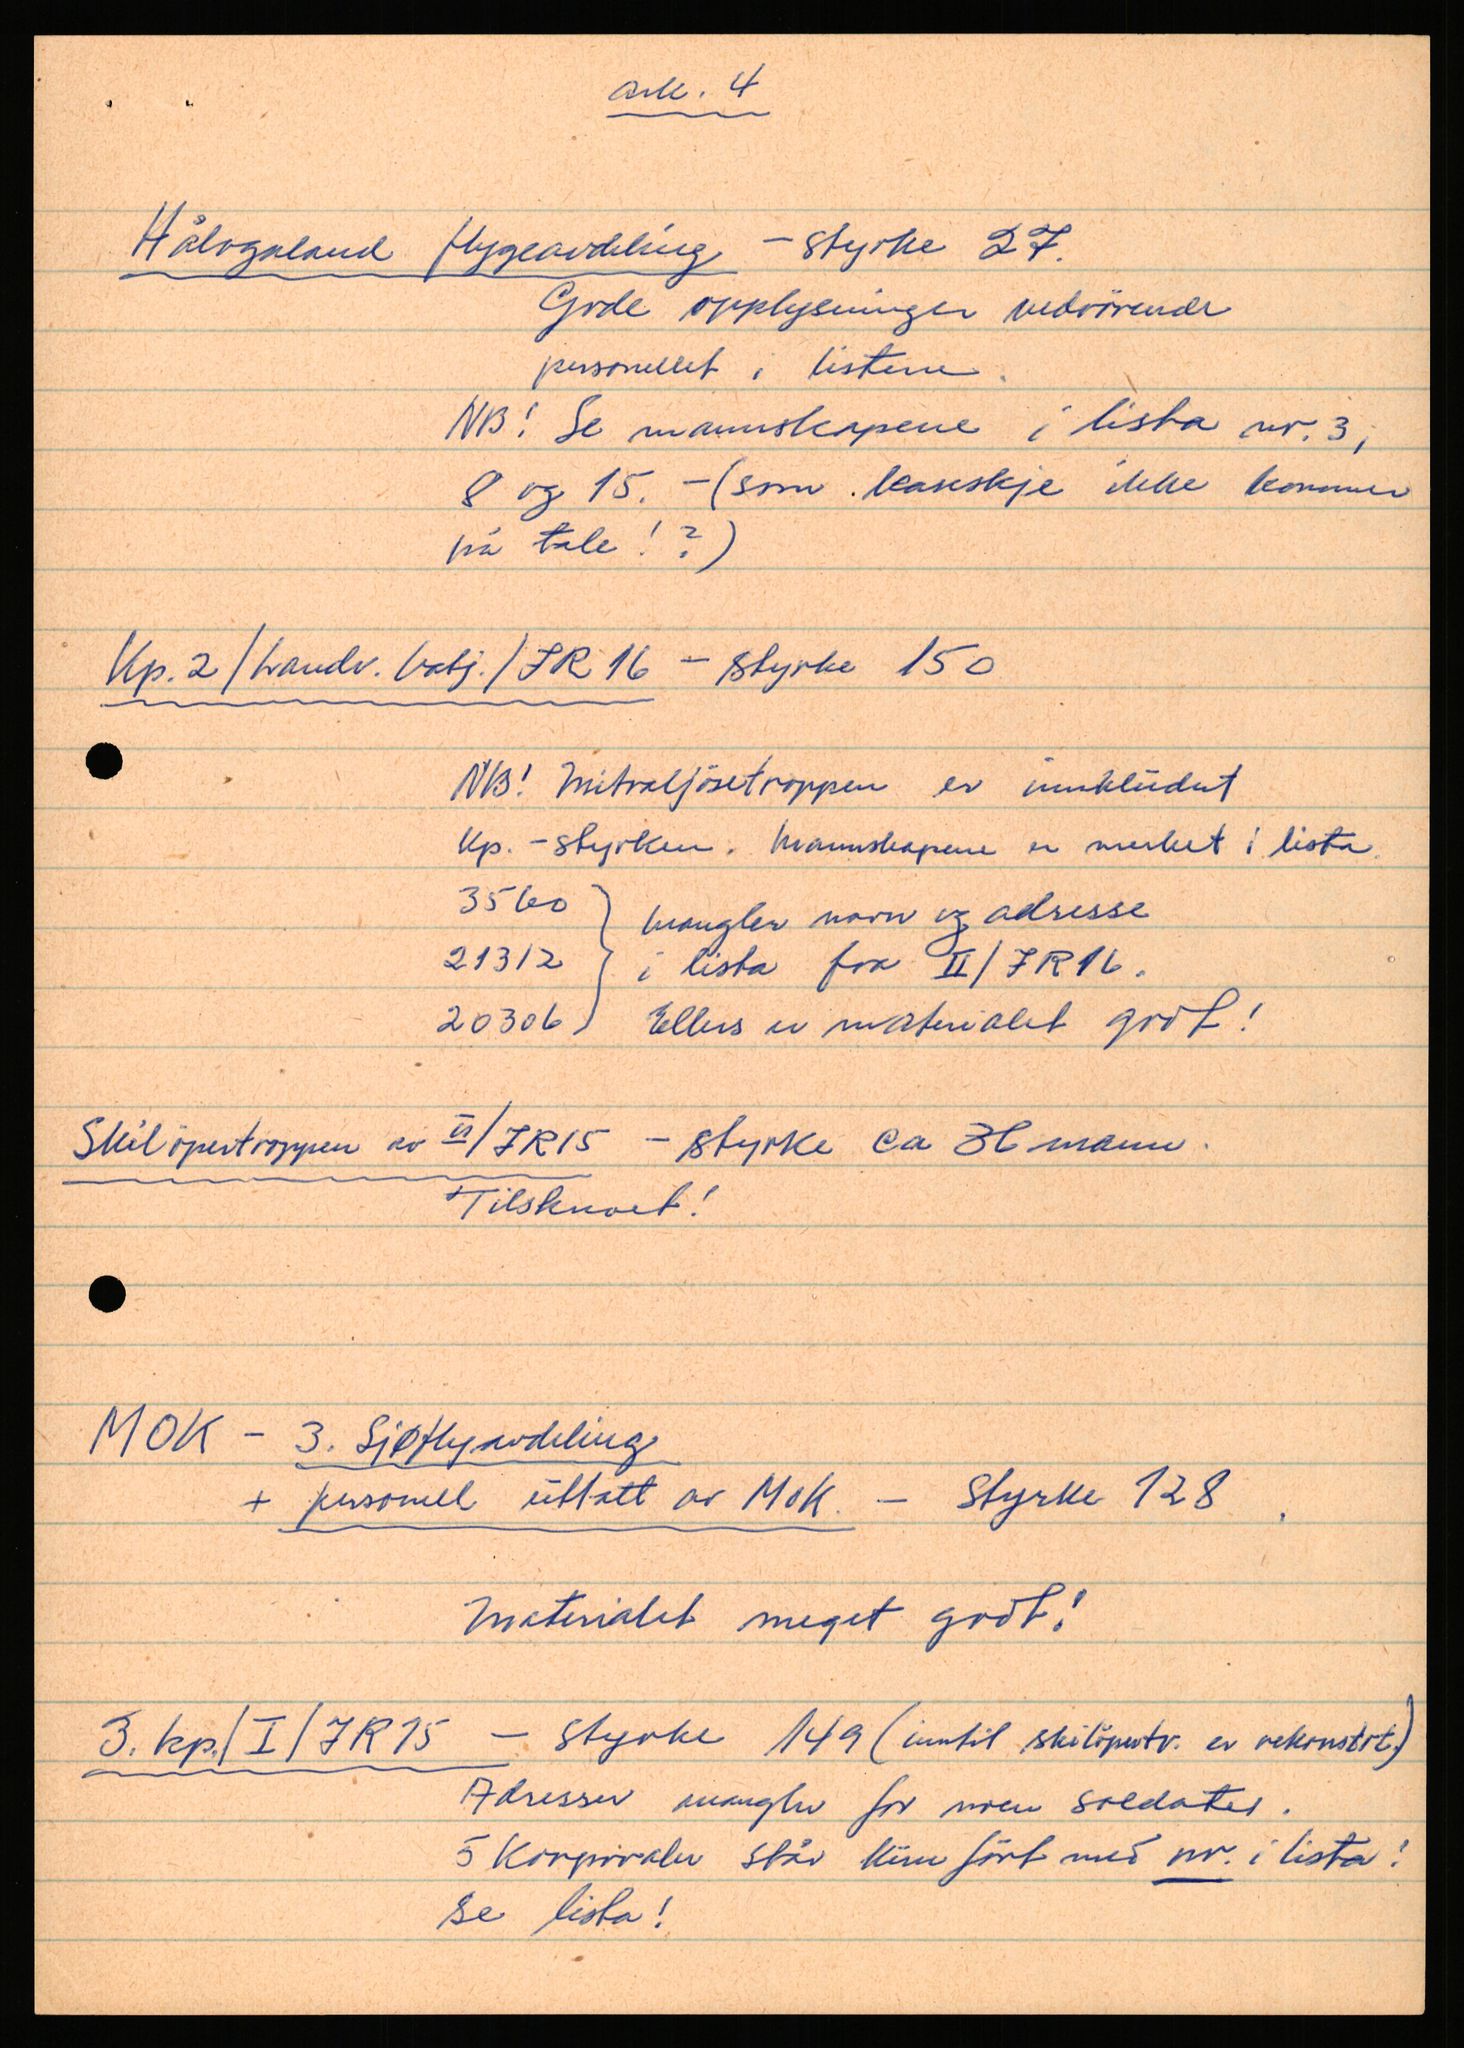 ark. 4
Hålogaland flygeavdeling - styrke 27.
Gode opplysninger vedrörende
personellet i listene.
NB! Se mannskapene i lista nr. 3,
8 og 15. - (som kanskje ikke kommer
på tale!?)
Kp. 2/Landv. batj./IR 16 - styrke 150
NB! Mitraljösetroppen er innkludert
Kp.-styrken. Mannskapene er merket i lista.
3560 } mangler navn og adresse
21312 } i lista fra II/IR16.
20306 } Ellers er materialet godt!
Skilöpertroppen av II/IR15 - styrke ca mann.
Tilskrevet!
MOK - 3. Sjøflyavdeling
+ personell uttatt av MOK. - Styrke 128.
Materialet meget godt!
3. kp./I/IR15 - styrke 149 (inntil skilöpertr. er rekonstrt.)
Adresser mangler for noen soldater.
5 Korporaler står kun fört med nr. i lista!
Se lista!